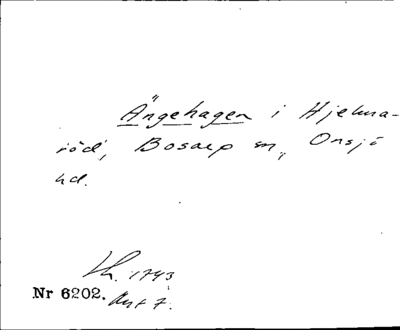 Ängehagen i Hjelma-
röd, Bosarp sn, Onsjö
hd.
Lh. 1743
Nr 6202. Akt 7.